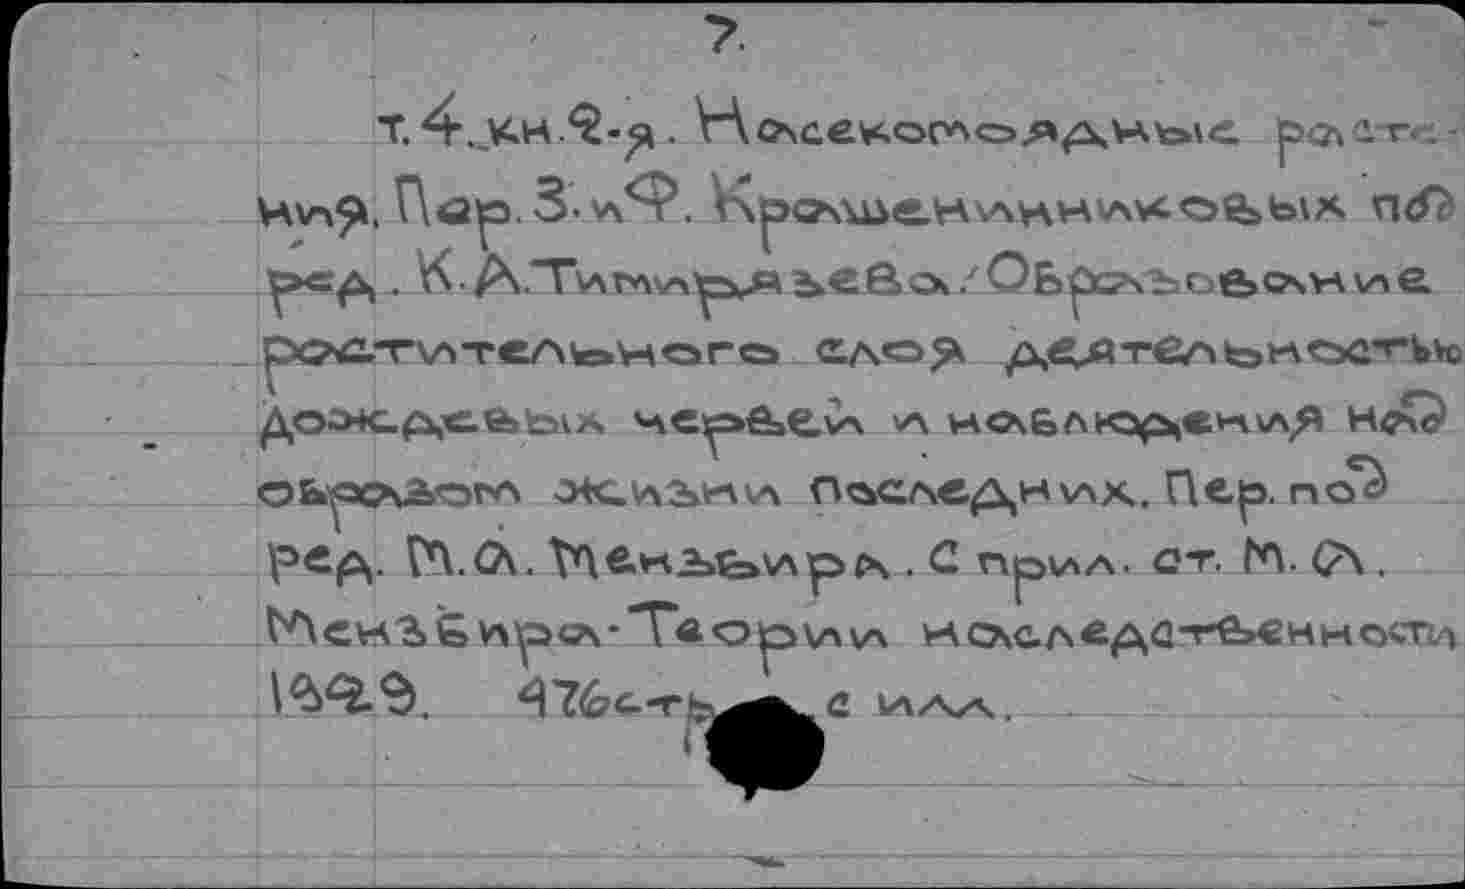 7.
т.4.,кн.2-я. Насекомоядные расте-
ния. Пер. З. и Ф. Крашенинниковых под
ред. К. А. Тимирязева./Образование
растительного слоя деятельностью
дождевых червей и наблюдения над
образом жизни последних. Пер. под
ред. М.А. Мензбира. С прил. ст. М. А.
Мензбира-Теории наследственности
1929. 476с-ть с илл.